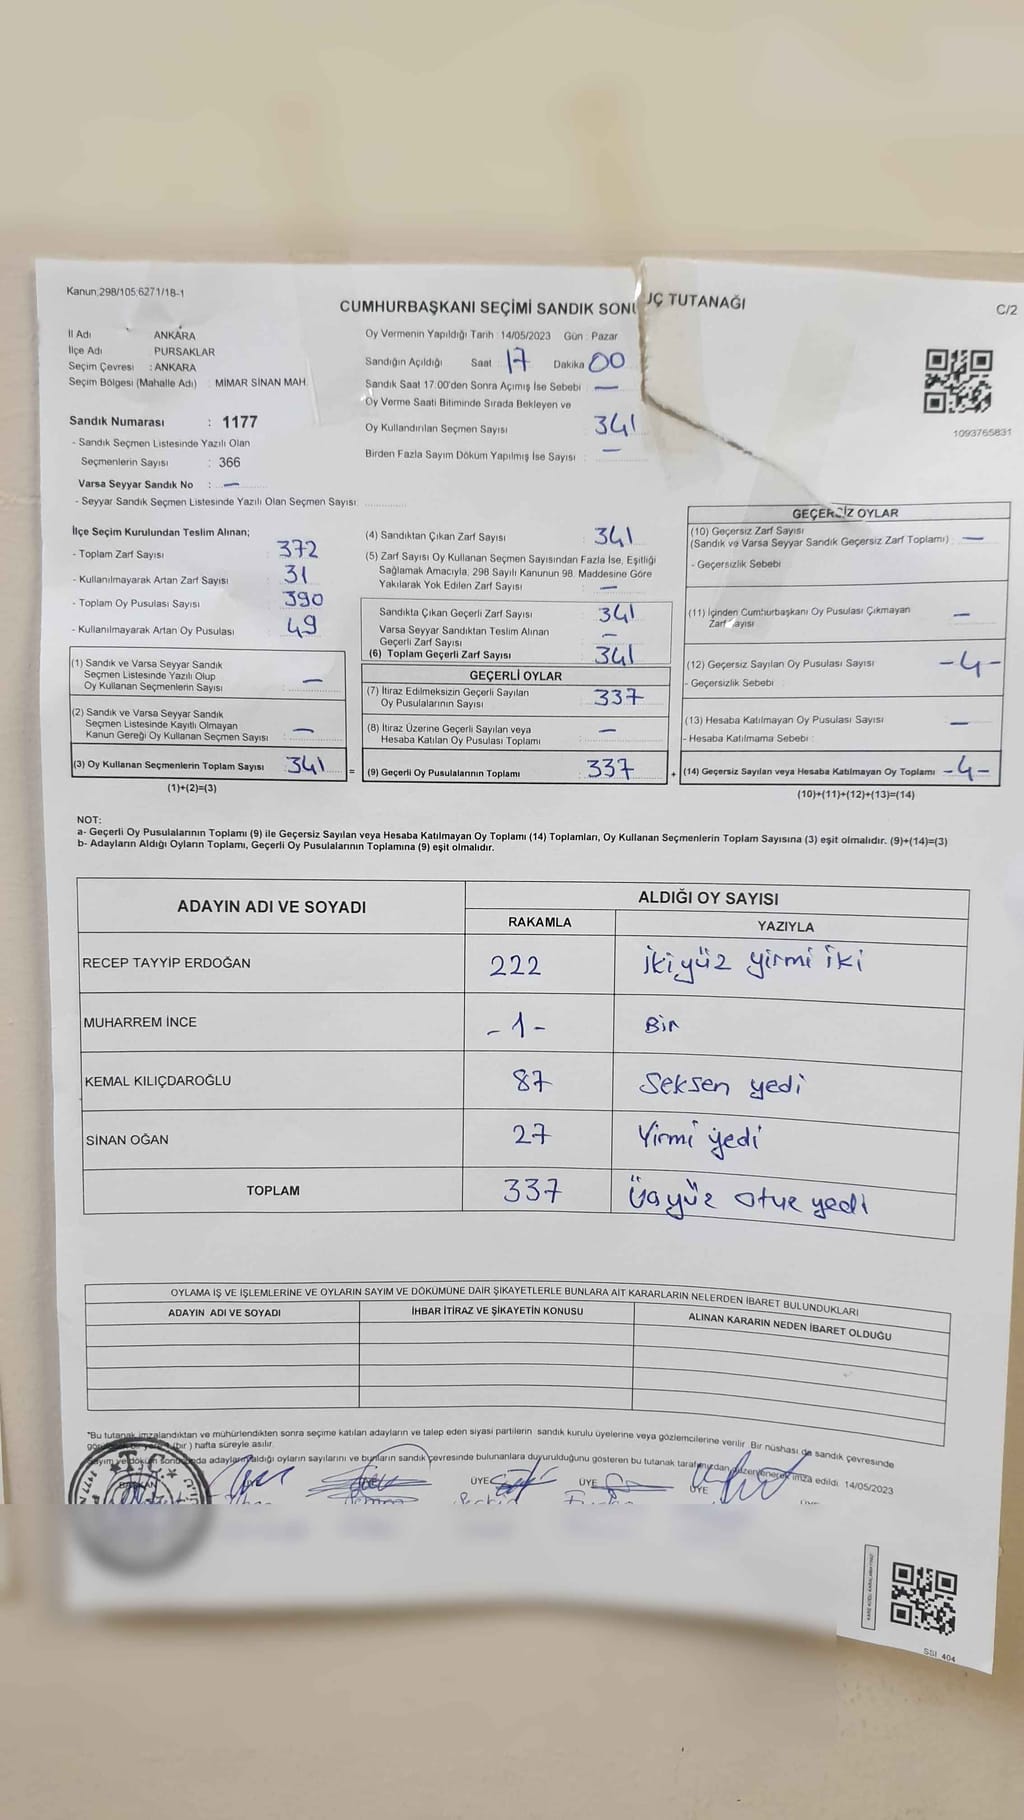 Kanun;298/105;6271/18-1
CUMHURBAŞKANI SEÇİMİ SANDIK SONUÇ TUTANAĞI
C/2
İl Adı ANKARA
İlçe Adı PURSAKLAR
Seçim Çevresi : ANKARA
Seçim Bölgesi (Mahalle Adı) : MİMAR SİNAN MAH.
Oy Vermenin Yapıldığı Tarih : 14/05/2023 Gün : Pazar
Sandığın Açıldığı Saat : 17 Dakika 00
Sandık Saat 17:00'den Sonra Açımış İse Sebebi : —
Oy Verme Saati Bitiminde Sırada Bekleyen ve
Oy Kullandırılan Seçmen Sayısı 341
Birden Fazla Sayım Döküm Yapılmış İse Sayısı : —
1093765831
Sandık Numarası : 1177
- Sandık Seçmen Listesinde Yazılı Olan
Seçmenlerin Sayısı : 366
Varsa Seyyar Sandık No : —
- Seyyar Sandık Seçmen Listesinde Yazılı Olan Seçmen Sayısı:
İlçe Seçim Kurulundan Teslim Alınan;
- Toplam Zarf Sayısı 372
- Kullanılmayarak Artan Zarf Sayısı : 31
- Toplam Oy Pusulası Sayısı 390
- Kullanılmayarak Artan Oy Pusulası : 49
(1) Sandık ve Varsa Seyyar Sandık
Seçmen Listesinde Yazılı Olup
Oy Kullanan Seçmenlerin Sayısı : —
(2) Sandık ve Varsa Seyyar Sandık
Seçmen Listesinde Kayıtlı Olmayan
Kanun Gereği Oy Kullanan Seçmen Sayısı : —
(3) Oy Kullanan Seçmenlerin Toplam Sayısı 341 =
(1)+(2)=(3)
(4) Sandıktan Çıkan Zarf Sayısı : 341
(5) Zarf Sayısı Oy Kullanan Seçmen Sayısından Fazla İse, Eşitliği
Sağlamak Amacıyla, 298 Sayılı Kanunun 98. Maddesine Göre
Yakılarak Yok Edilen Zarf Sayısı : —
Sandıkta Çıkan Geçerli Zarf Sayısı : 341
Varsa Seyyar Sandıktan Teslim Alınan
Geçerli Zarf Sayısı : —
(6) Toplam Geçerli Zarf Sayısı : 341
GEÇERLİ OYLAR
(7) İtiraz Edilmeksizin Geçerli Sayılan
Oy Pusulalarının Sayısı : 337
(8) İtiraz Üzerine Geçerli Sayılan veya
Hesaba Katılan Oy Pusulası Toplamı : —
(9) Geçerli Oy Pusulalarının Toplamı 337 +
GEÇERSİZ OYLAR
(10) Geçersiz Zarf Sayısı
(Sandık ve Varsa Seyyar Sandık Geçersiz Zarf Toplamı) : —
- Geçersizlik Sebebi :
(11) İçinden Cumhurbaşkanı Oy Pusulası Çıkmayan
Zarf Sayısı —
(12) Geçersiz Sayılan Oy Pusulası Sayısı -4-
- Geçersizlik Sebebi :
(13) Hesaba Katılmayan Oy Pusulası Sayısı —
- Hesaba Katılmama Sebebi :
(14) Geçersiz Sayılan veya Hesaba Katılmayan Oy Toplamı -4-
(10)+(11)+(12)+(13)=(14)
NOT:
a- Geçerli Oy Pusulalarının Toplamı (9) ile Geçersiz Sayılan veya Hesaba Katılmayan Oy Toplamı (14) Toplamları, Oy Kullanan Seçmenlerin Toplam Sayısına (3) eşit olmalıdır. (9)+(14)=(3)
b- Adayların Aldığı Oyların Toplamı, Geçerli Oy Pusulalarının Toplamına (9) eşit olmalıdır.
ADAYIN ADI VE SOYADI ALDIĞI OY SAYISI
RAKAMLA YAZIYLA
RECEP TAYYİP ERDOĞAN 222 İkiyüz yirmi iki
MUHARREM İNCE -1- Bir
KEMAL KILIÇDAROĞLU 87 Seksen yedi
SİNAN OĞAN 27 Yirmi yedi
TOPLAM 337 Üçyüz otuz yedi
OYLAMA İŞ VE İŞLEMLERİNE VE OYLARIN SAYIM VE DÖKÜMÜNE DAİR ŞİKAYETLERLE BUNLARA AİT KARARLARIN NELERDEN İBARET BULUNDUKLARI
ADAYIN ADI VE SOYADI İHBAR İTİRAZ VE ŞİKAYETİN KONUSU ALINAN KARARIN NEDEN İBARET OLDUĞU
"Bu tutanak imzalandıktan ve mühürlendikten sonra seçime katılan adayların ve talep eden siyasi partilerin sandık kurulu üyelerine veya gözlemcilerine verilir. Bir nüshası da sandık çevresinde
bir yere 1 (bir ) hafta süreyle asılır.
Sayım ve döküm sonucunda adayların aldığı oyların sayılarını ve bunların sandık çevresinde bulunanlara duyurulduğunu gösteren bu tutanak tarafımızdan düzenlenerek imza edildi. 14/05/2023
BAŞKAN ÜYE ÜYE ÜYE
SSI 404